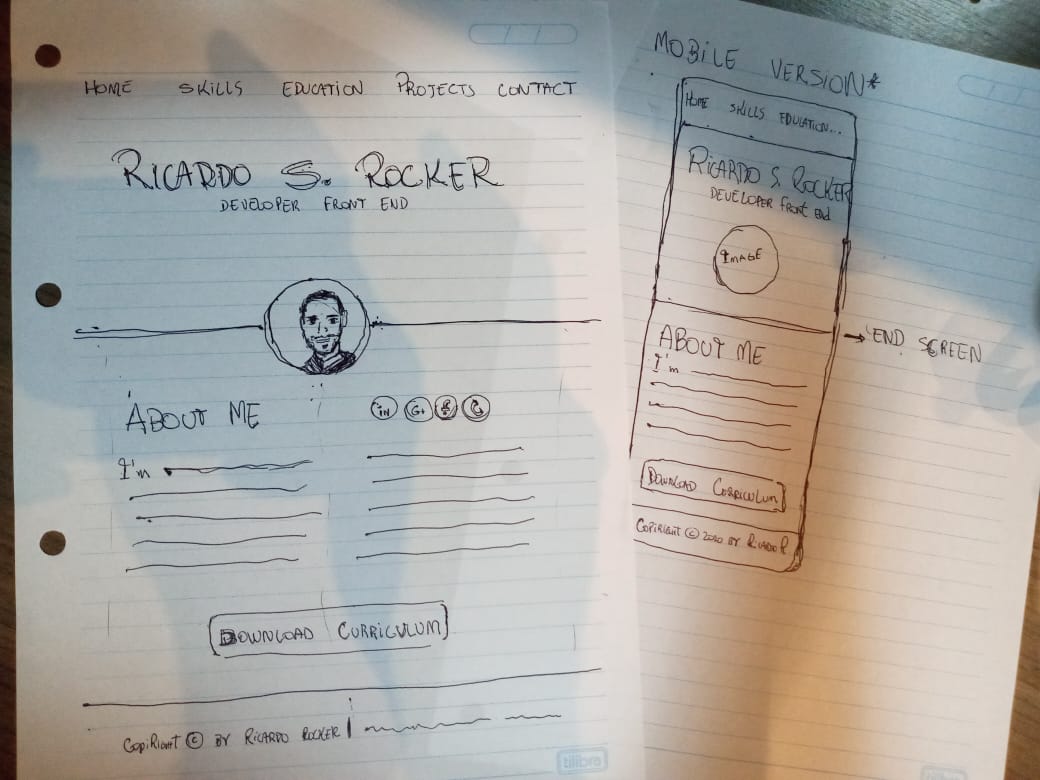 HOME SKILLS EDUCATION PROJECTS CONTACT
RICARDO S. ROCKER
DEVELOPER FRONT END
ABOUT ME
in G+
I'm
DOWNLOAD CURRICULUM
COPIRIGHT © BY RICARDO ROCKER |
tilibra
MOBILE VERSION*
HOME SKILLS EDUCATION...
RICARDO S. ROCKER
DEVELOPER FRONT END
IMAGE
→ END SCREEN
ABOUT ME
I'm
DOWNLOAD CURRICULUM
COPIRIGHT © 2020 BY RICARDO R.